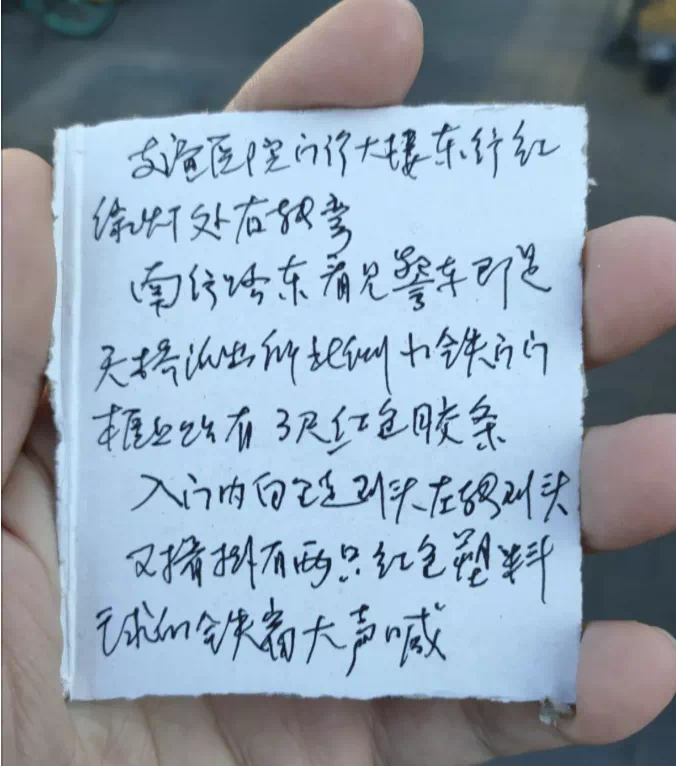 交通医院门诊大楼东行红
绿灯处右转弯
南行路东看见警车即是
天桥派出所北侧小铁门门
框上贴有3尺红色胶条
入门内向里走到头左转到头
又接掛有两只红色塑料
毛球的铁窗大声喊